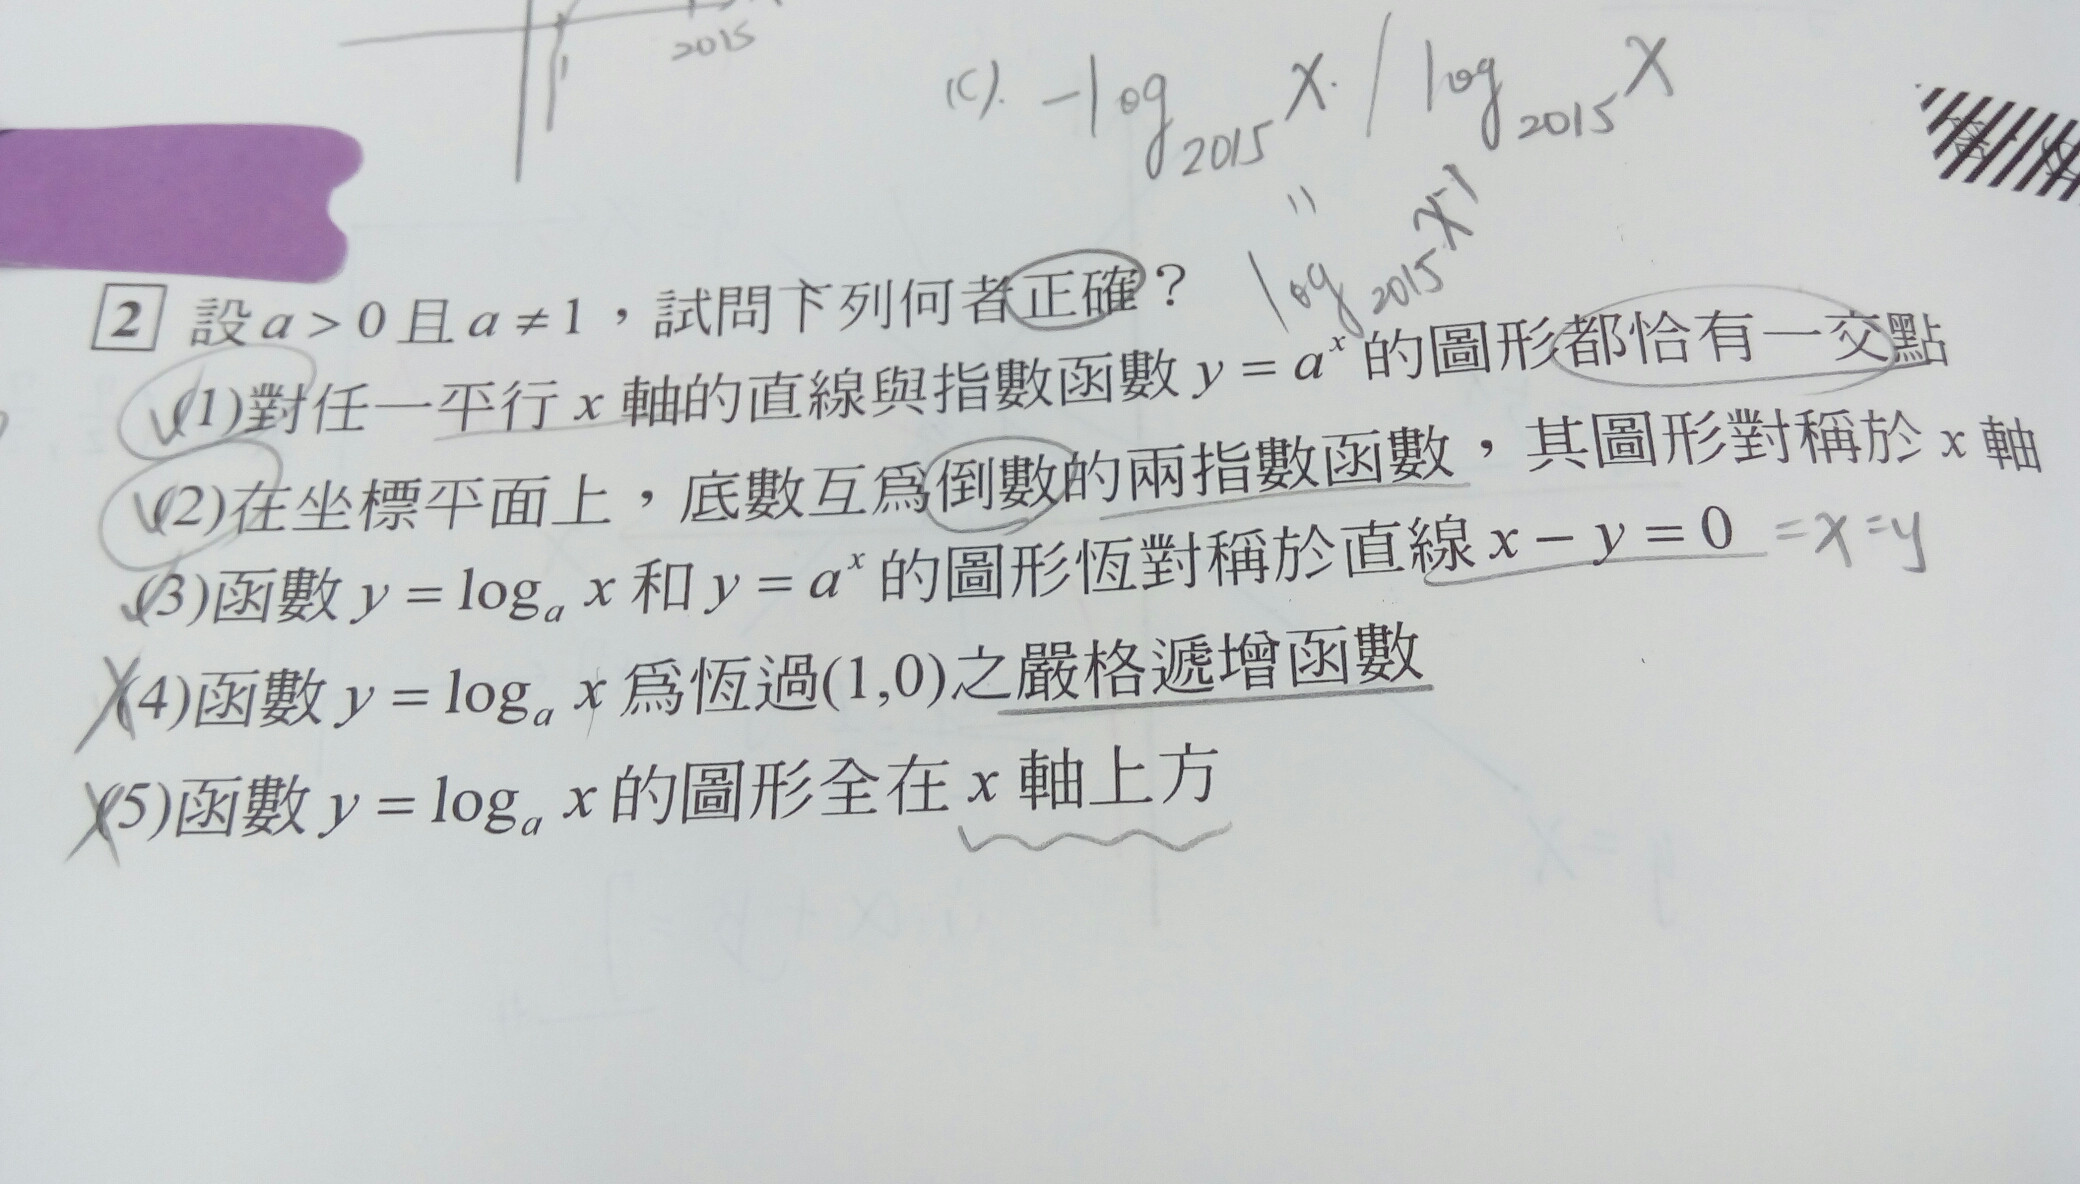 2015
(C). -log₂₀₁₅ x. / log₂₀₁₅ x
"
log₂₀₁₅ x⁻¹
2 設 a > 0 且 a ≠ 1，試問下列何者正確？
(1)對任一平行 x 軸的直線與指數函數 y = aˣ 的圖形都恰有一交點
(2)在坐標平面上，底數互爲倒數的兩指數函數，其圖形對稱於 x 軸
(3)函數 y = logₐ x 和 y = aˣ 的圖形恆對稱於直線 x − y = 0 = x = y
(4)函數 y = logₐ x 爲恆過(1,0)之嚴格遞增函數
(5)函數 y = logₐ x 的圖形全在 x 軸上方